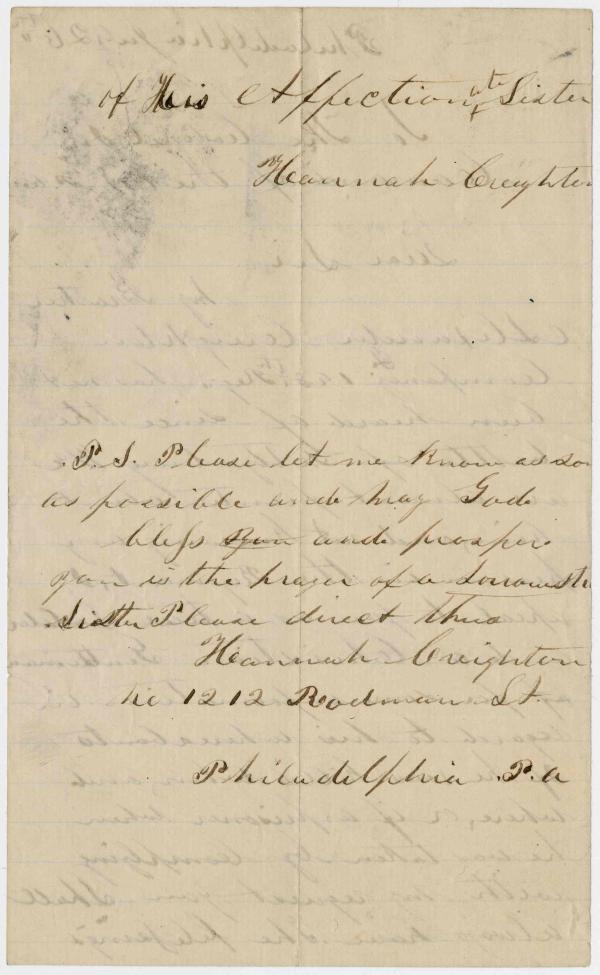 of His Affectionate Sister
Hannah Creighton
P. S. Please let me Know as soo
as possible and may God
bless you and prosper
you is the prayer of a Sorrow
Sister Please direct thus
Hannah Creighton
No 1212 Rodman St.
Philadelphia P.a